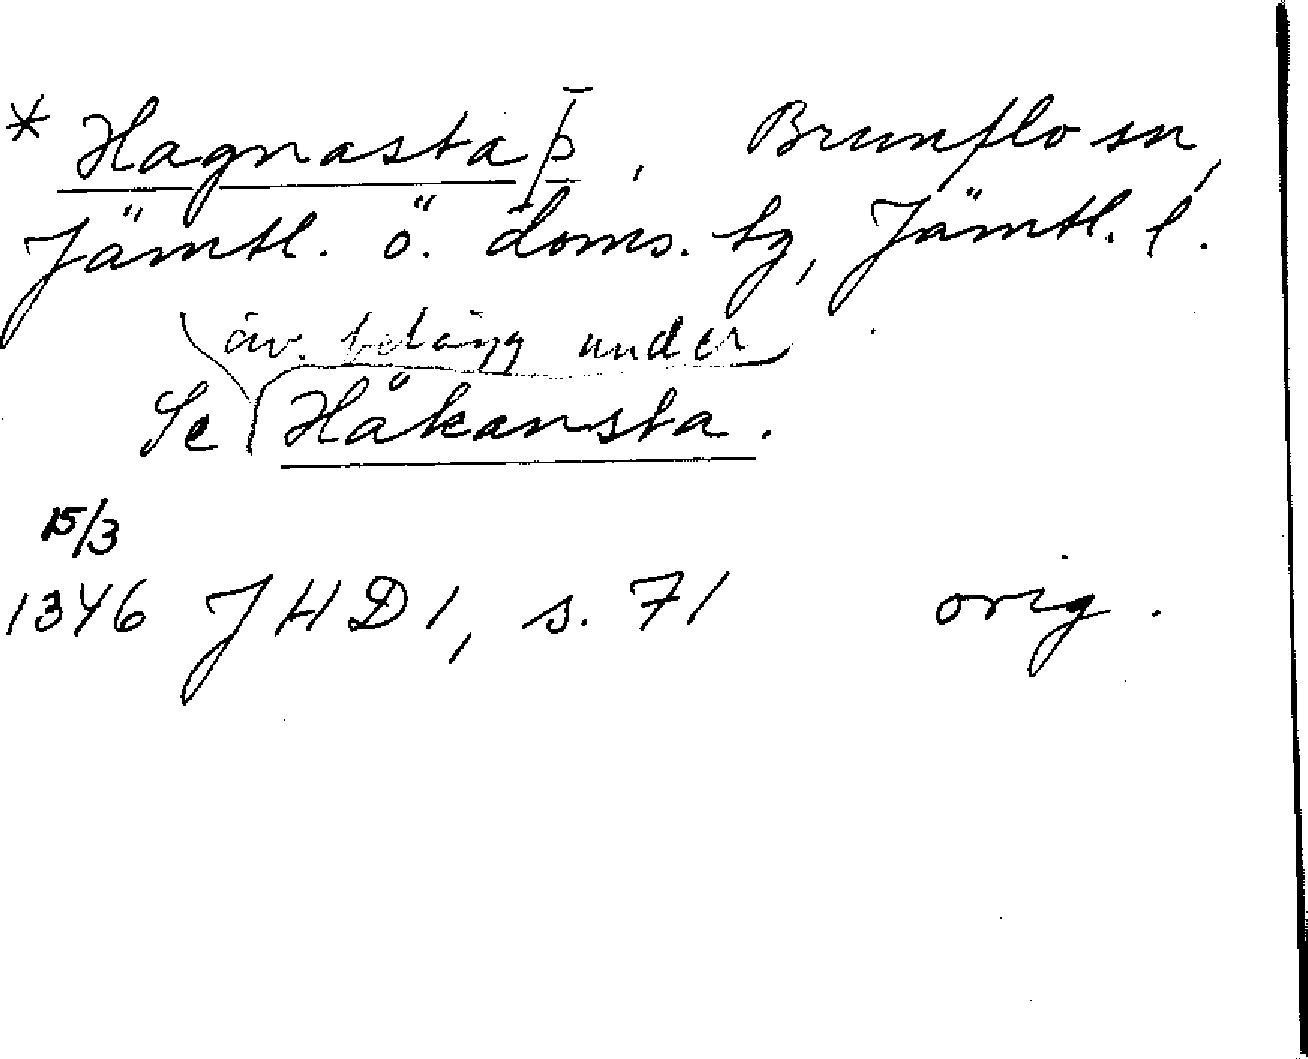 * Hagnastaþ, Brunflo sn,
Jämtl. ö. doms. tg, Jämtl. l.
äv. belägg under
Se Håkansta.
15/3
1346 JHD 1, s. 71 orig.